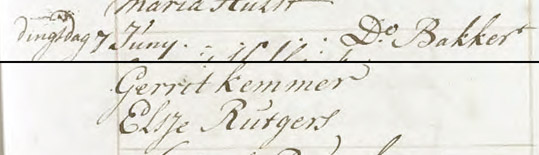 Maria Hulst
dingsdag 7 Juny. Do. Bakker
Gerrit kemmer
Elsje Rutgers